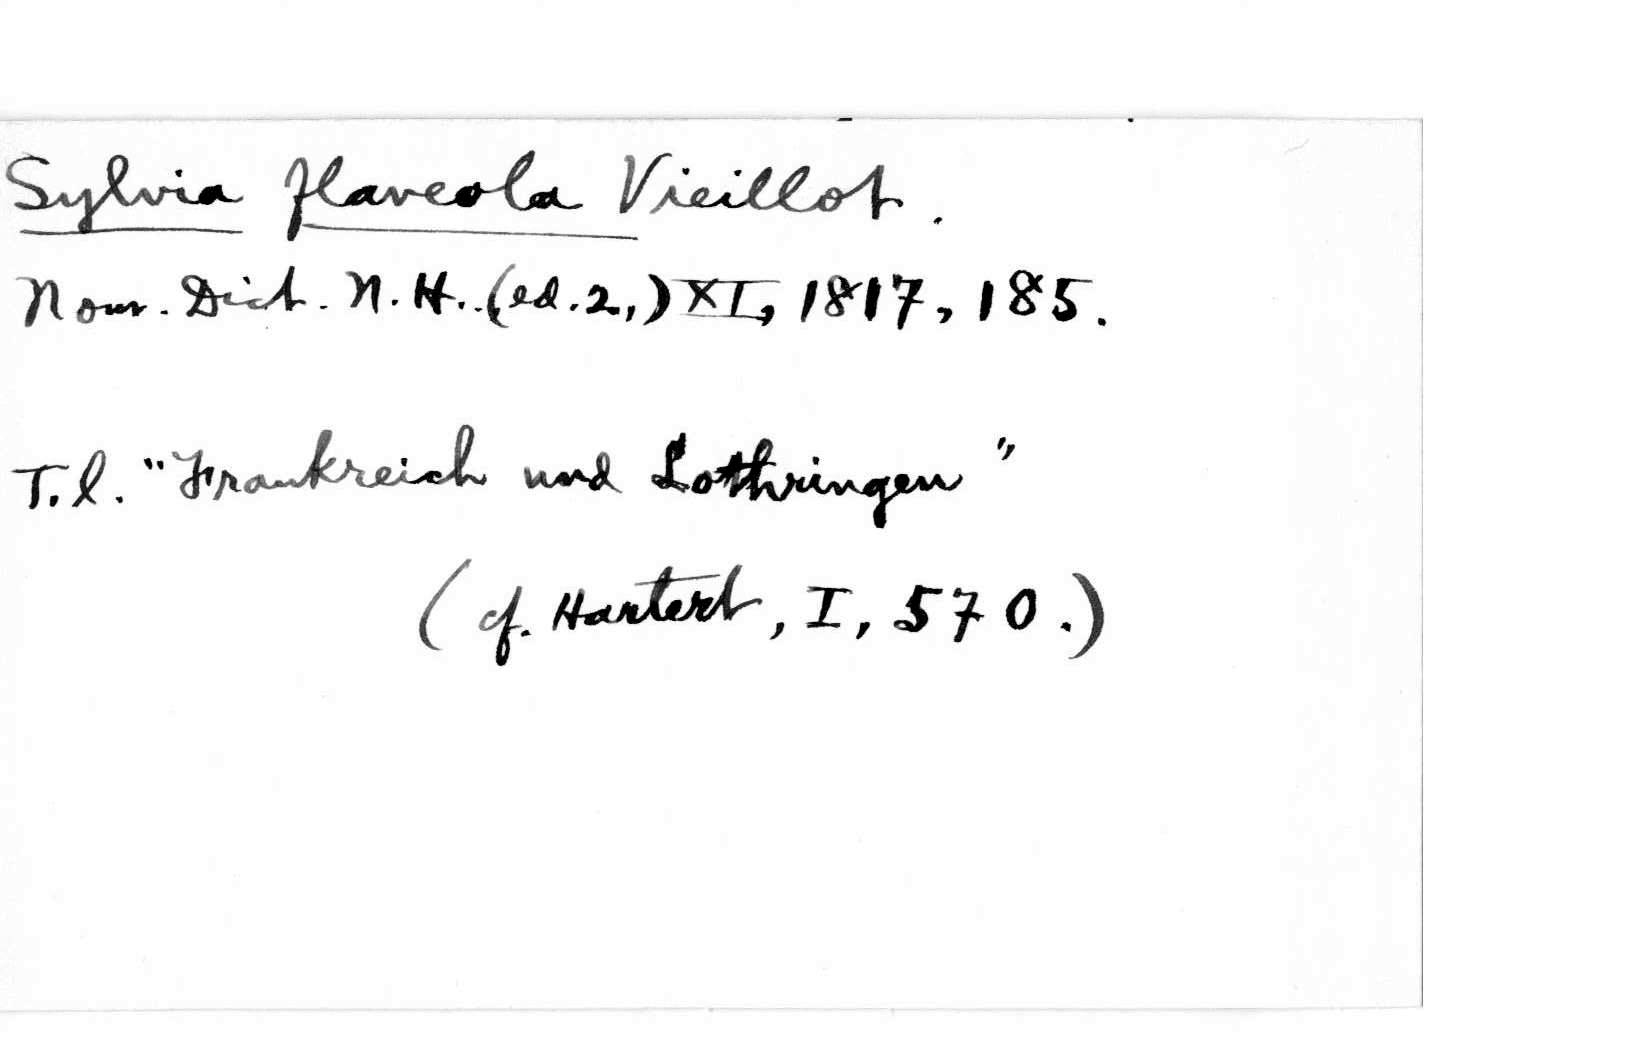 Sylvia flaveola Vieillot.
Nouv. Dict. N. H. (ed. 2,) XI, 1817, 185.
T. l. "Frankreich und Lothringen"
(cf. Hartert, I, 570.)